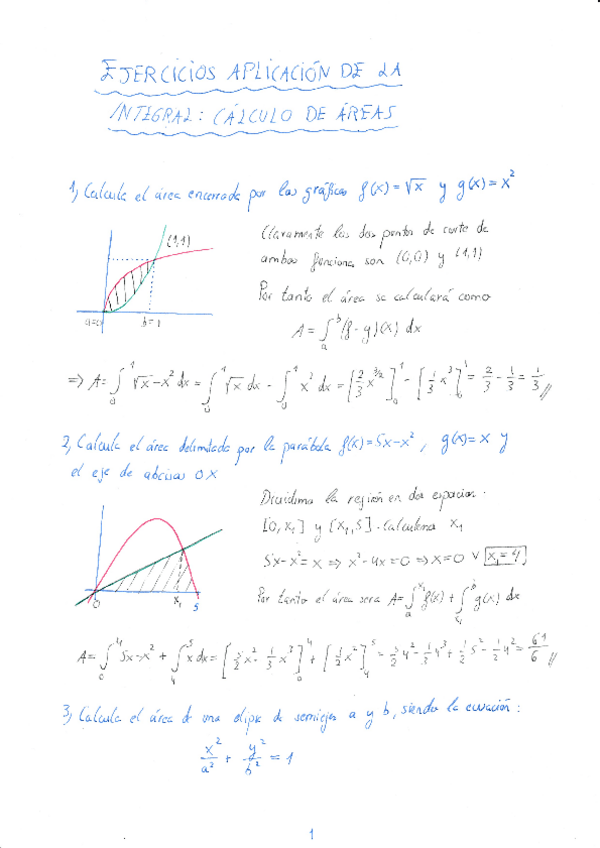 EJERCICIOS APLICACIÓN DE LA
INTEGRAL: CÁLCULO DE ÁREAS
1) Calcula el área encerrada por las gráficas f(x)=√x y g(x)=x²
(1,1)
a=0
b=1
Claramente los dos puntos de corte de
ambas funciones son (0,0) y (1,1)
Por tanto el área se calculará como
A=∫ₐᵇ(f-g)(x) dx
=> A=∫₀¹√x-x² dx = ∫₀¹√x dx - ∫₀¹x² dx = [2/3 x^(3/2)]₀¹ - [1/3 x³]₀¹ = 2/3 - 1/3 = 1/3 //
2) Calcula el área delimitada por la parábola f(x)=5x-x², g(x)=x y
el eje de abcisas OX
0
x₁
5
Dividimos la región en dos espacios.
[0,x₁] y [x₁,5]. Calculemos x₁
5x-x²=x => x²-4x=0 => x=0 ∨ x₁=4
Por tanto el área sera A=∫ f(x) + ∫ g(x) dx
A=∫₀⁴5x-x² + ∫₄⁵x dx = [5/2 x² - 1/3 x³]₀⁴ + [1/2 x²]₄⁵ = 5/2 4² - 1/3 4³ + 1/2 5² - 1/2 4² = 61/6 //
3) Calcula el área de una elipse de semiejes a y b, siendo la ecuación:
x²/a² + y²/b² = 1
1